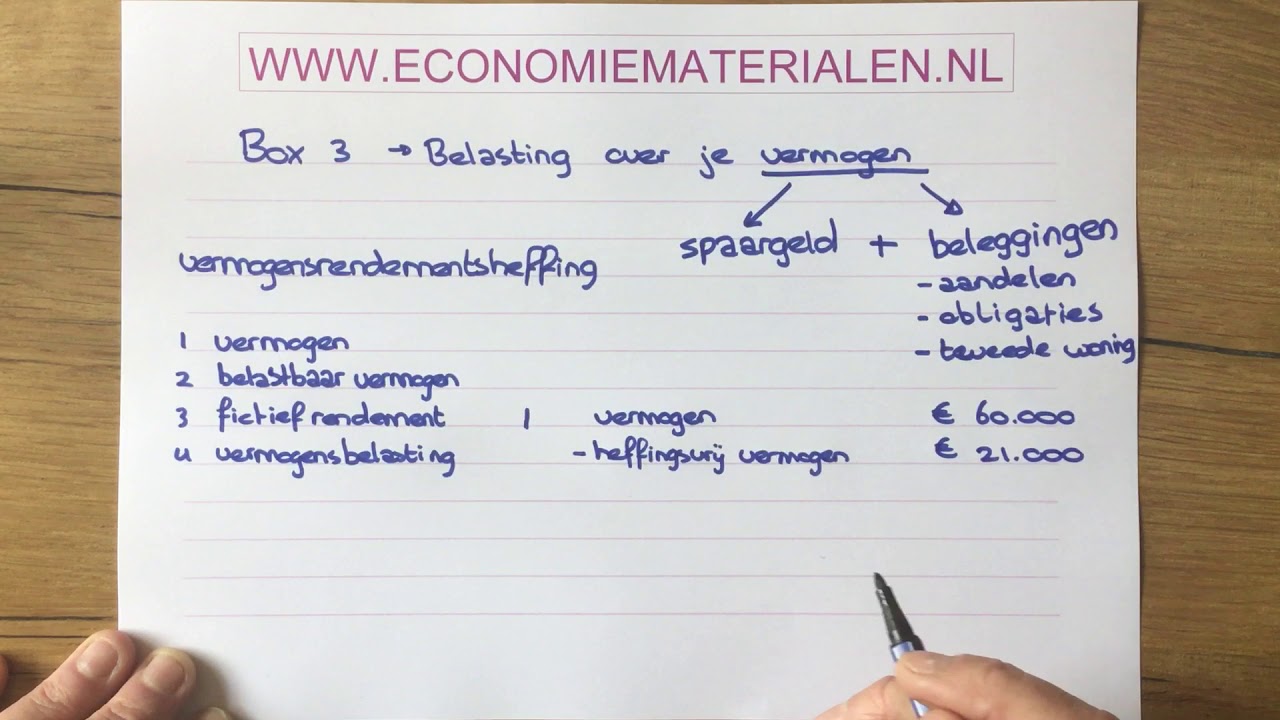 WWW.ECONOMIEMATERIALEN.NL
Box 3 → Belasting over je vermogen
spaargeld + beleggingen
- aandelen
- obligaties
- tweede woning
vermogensrendementsheffing
1 vermogen
2 belastbaar vermogen
3 fictief rendement
4 vermogensbelasting
1 vermogen € 60.000
- heffingsvrij vermogen € 21.000